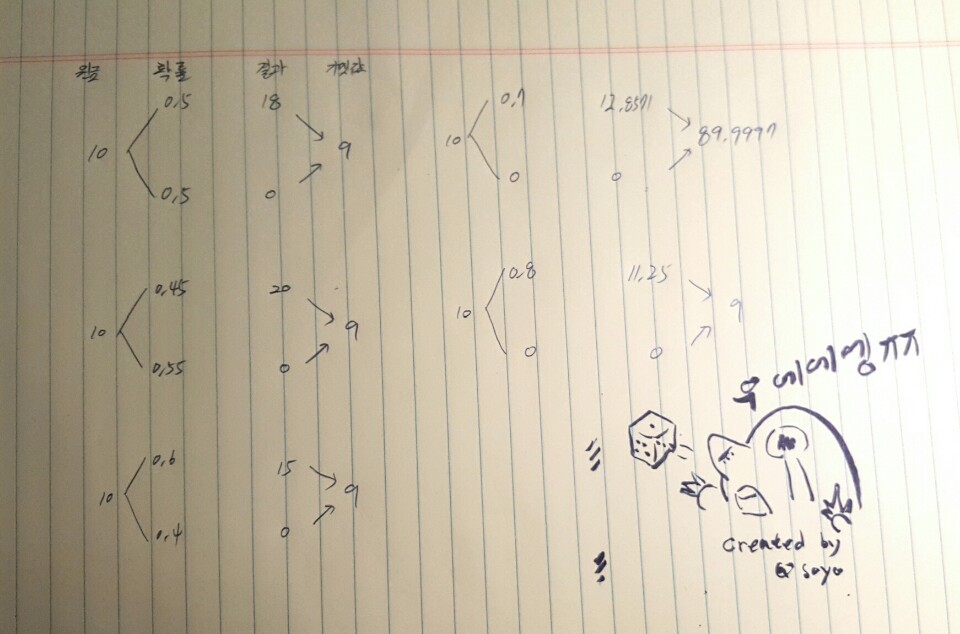 원금 확률 결과 기댓값
10 0.5 18 9
0.5 0
10 0.45 20 9
0.55 0
10 0.6 15 9
0.4 0
10 0.7 12.8571 89.9997
0 0
10 0.8 11.25 9
0 0
우에에엥ㅠㅠ
created by
soyo